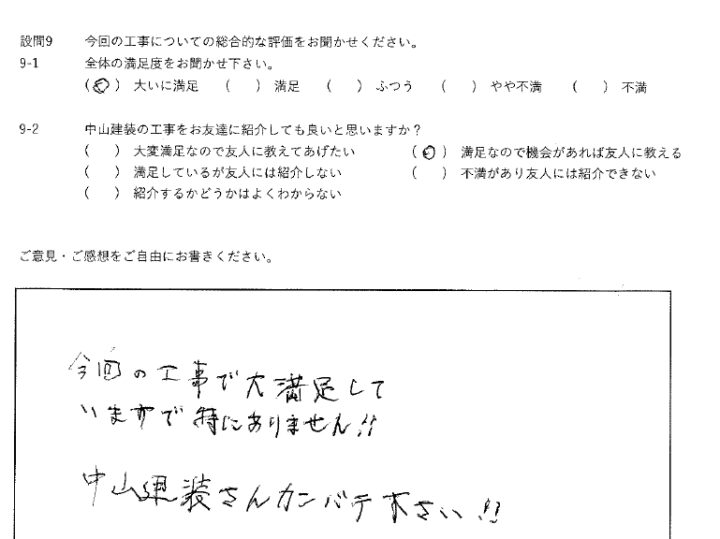 設問9 今回の工事についての総合的な評価をお聞かせください。
9-1 全体の満足度をお聞かせ下さい。
(○) 大いに満足 ( ) 満足 ( ) ふつう ( ) やや不満 ( ) 不満
9-2 中山建装の工事をお友達に紹介しても良いと思いますか？
( ) 大変満足なので友人に教えてあげたい (○) 満足なので機会があれば友人に教える
( ) 満足しているが友人には紹介しない ( ) 不満があり友人には紹介できない
( ) 紹介するかどうかはよくわからない
ご意見・ご感想をご自由にお書きください。
今回の工事で大満足して
いますで特にありません!!
中山建装さんカンバテ下さい!!